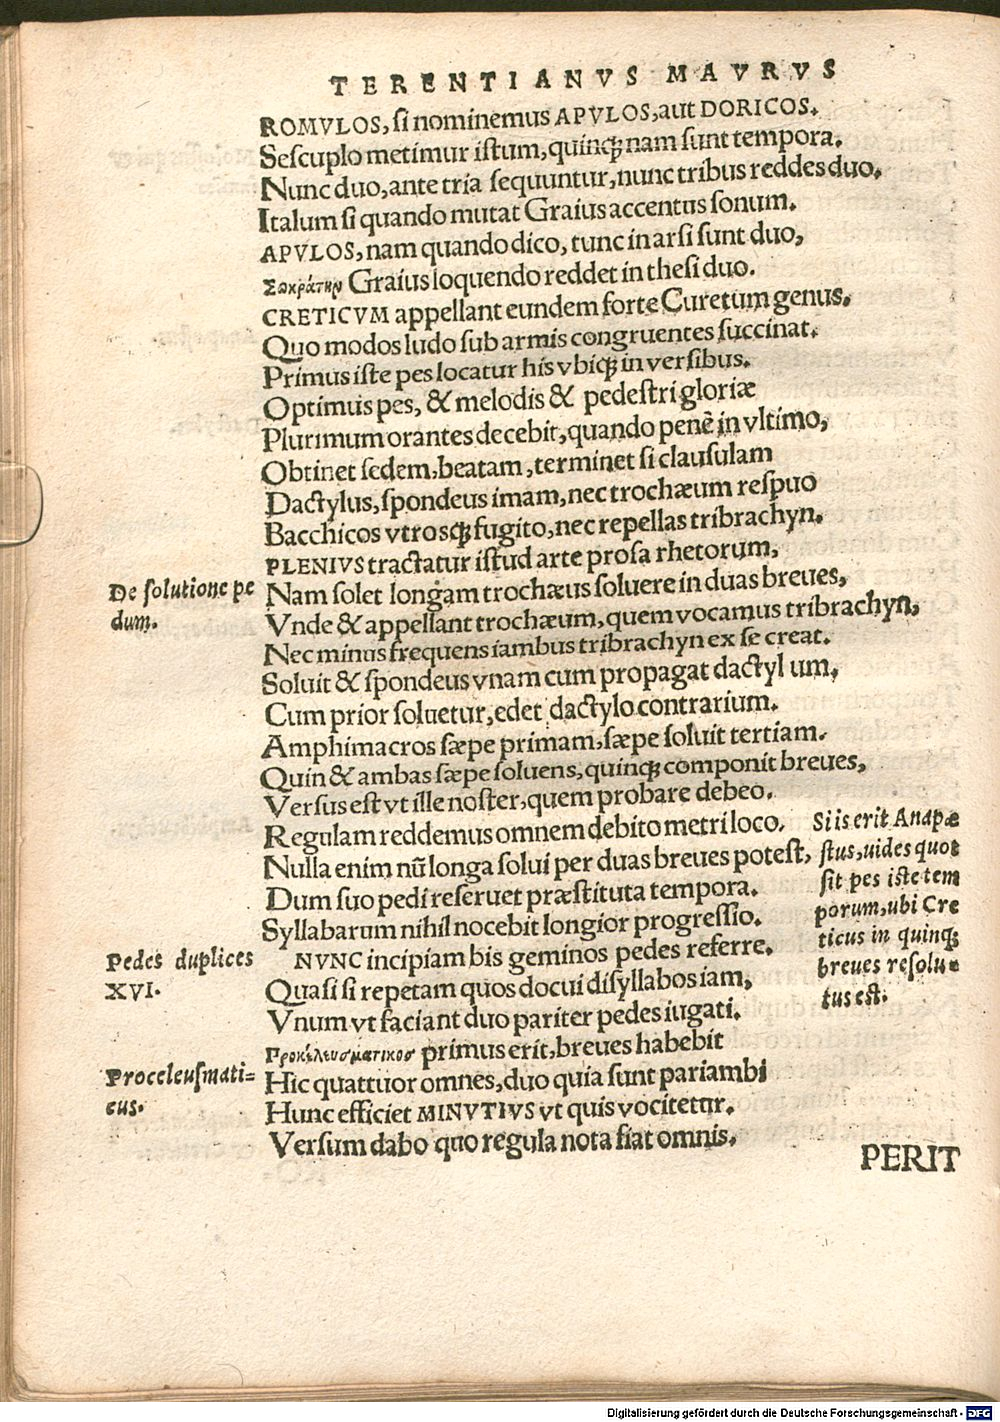 TERENTIANVS MAVRVS
ROMVLOS, ſi nominemus APVLOS, aut DORICOS.
Seſcuplo metimur iſtum, quinqꝫ nam ſunt tempora.
Nunc duo, ante tria ſequuntur, nunc tribus reddes duo.
Italum ſi quando mutat Graius accentus ſonum.
APVLOS, nam quando dico, tunc in arſi ſunt duo,
Σωκράτην Graius loquendo reddet in theſi duo.
CRETICVM appellant eundem forte Curetum genus.
Quo modos ludo ſub armis congruentes ſuccinat.
Primus iſte pes locatur his vbiqꝫ in verſibus.
Optimus pes, & melodis & pedeſtri gloriæ
Plurimum orantes decebit, quando penè in vltimo,
Obtinet ſedem, beatam, terminet ſi clauſulam
Dactylus, ſpondeus imam, nec trochæum reſpuo
Bacchicos vtroſqꝫ fugito, nec repellas tribrachyn.
PLENIVS tractatur iſtud arte proſa rhetorum,
De ſolutione pe
dum.
Nam ſolet longam trochæus ſoluere in duas breues,
Vnde & appellant trochæum, quem vocamus tribrachyn,
Nec minus frequens iambus tribrachyn ex ſe creat.
Soluit & ſpondeus vnam cum propagat dactyl um,
Cum prior ſoluetur, edet dactylo contrarium.
Amphimacros ſæpe primam, ſæpe ſoluit tertiam.
Quin & ambas ſæpe ſoluens, quinqꝫ componit breues,
Verſus eſt vt ille noſter, quem probare debeo.
Regulam reddemus omnem debito metri loco.
Nulla enim nū longa ſolui per duas breues poteſt,
Dum ſuo pedi reſeruet præſtituta tempora.
Syllabarum nihil nocebit longior progreſſio.
Si is erit Anapæ
ſtus, uides quot
ſit pes iſte tem
porum, ubi Cre
ticus in quinqꝫ
breues reſolu-
tus eſt.
Pedes duplices
XVI.
NVNC incipiam bis geminos pedes referre.
Quaſi ſi repetam quos docui diſyllabos iam,
Vnum vt faciant duo pariter pedes iugati.
Προκέλευσματικος primus erit, breues habebit
Proceleuſmati-
cus.
Hic quattuor omnes, duo quia ſunt pariambi
Hunc efficiet MINVTIVS ut quis vocitetur.
Verſum dabo quo regula nota fiat omnis.
PERIT
Digitalisierung gefördert durch die Deutsche Forschungsgemeinschaft - DFG